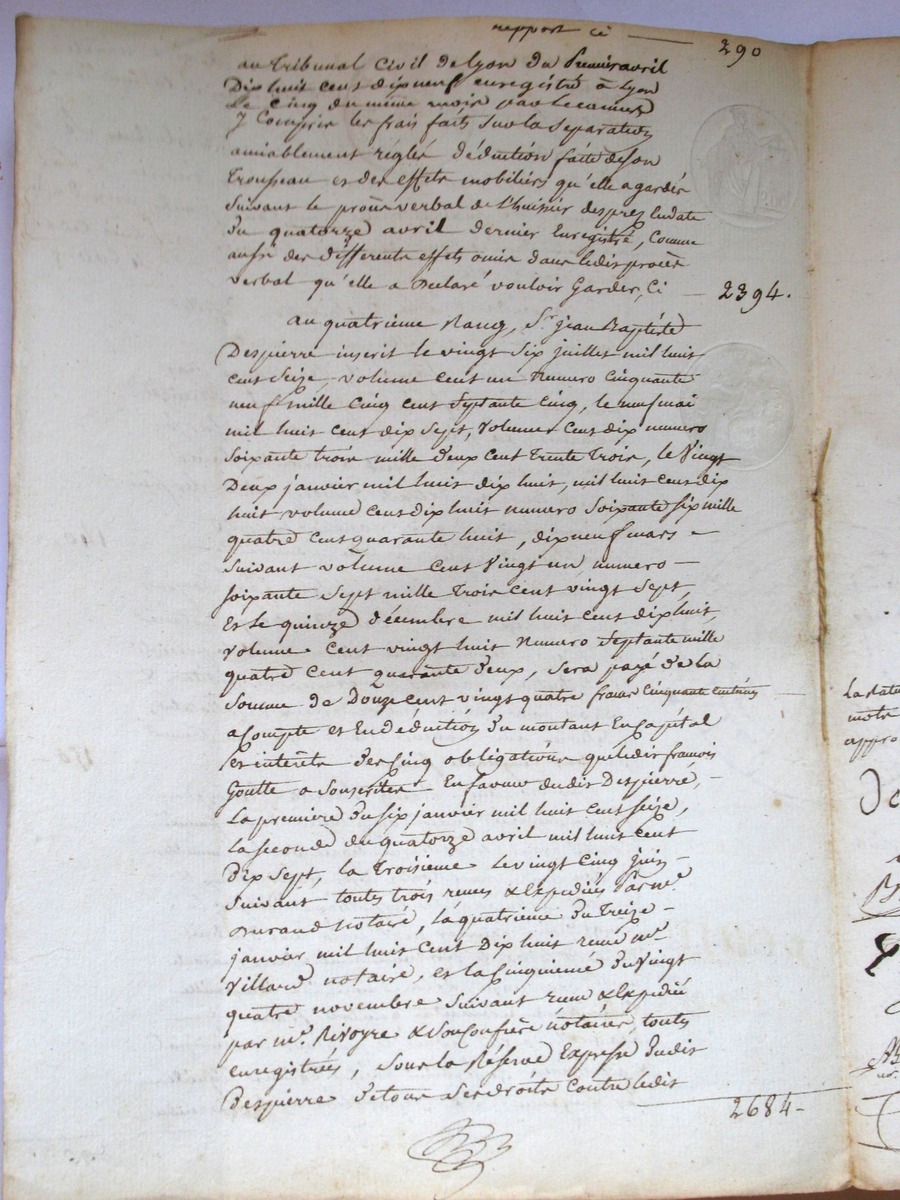 report ci — 290
au tribunal Civil de Lyon du Premier avril
Dix huit cent dix neuf enregistré à Lyon
Le cinq du même mois par Lecamus
y Compris les frais faits sur la Séparation
amiablement réglés déduction faite de son
trousseau et des effets mobiliers qu'elle a gardés
suivant le procès verbal de l'huissier Desprez en date
du quatorze avril dernier Enregistré, Comme
aussi des différents effets omis dans ledit procès
verbal qu'elle a Déclaré vouloir Garder, Ci — 2394.
au quatrieme Rang, Sr. jean Baptiste
Despierre inscrit le vingt six juillet mil huit
cent seize, volume cent un Numero cinquante
neuf mille Cinq cent Septante Cinq, le neuf mai
mil huit cent dix sept, Volume Cent dix numero
soixante trois mille deux cent trente trois, le Vingt
Deux janvier mil huit dix huit, mil huit cent dix
huit volume cent dix huit numero Soixante six mille
quatre cent quarante huit, dix neuf mars –
suivant volume cent Vingt un numero –
soixante sept mille trois cent vingt sept
Et le quinze décembre mil huit cent dix huit,
volume cent vingt huit Numero Septante mille
quatre cent quarante deux, sera payé de la
somme de Douze cent vingt quatre francs Cinquante centimes
a Compte et En déduction du montant En Capital
et intérêts des Cinq obligations que ledit françois
Goutte a Souscrites En faveur dudit Despierre, –
La premiere du six janvier mil huit Cent seize,
la seconde du quatorze avril mil huit cent
Dix Sept, la troisieme Le vingt Cinq juin –
Suivant toutes trois reçues & Expédiées Par me.
Durand Notaire, la quatrieme du treize –
janvier mil huit Cent Dix huit reçue me
Villard notaire, et la Cinquieme du Vingt
quatre novembre Suivant reçue & Expédiée
par me. Rivoyre & Son Confrère notaires, toutes
enregistrées, Sous la Réserve Expresse dudit
Despierre de tous Ses droits Contre ledit
2684 –
La ratu
mots
appro